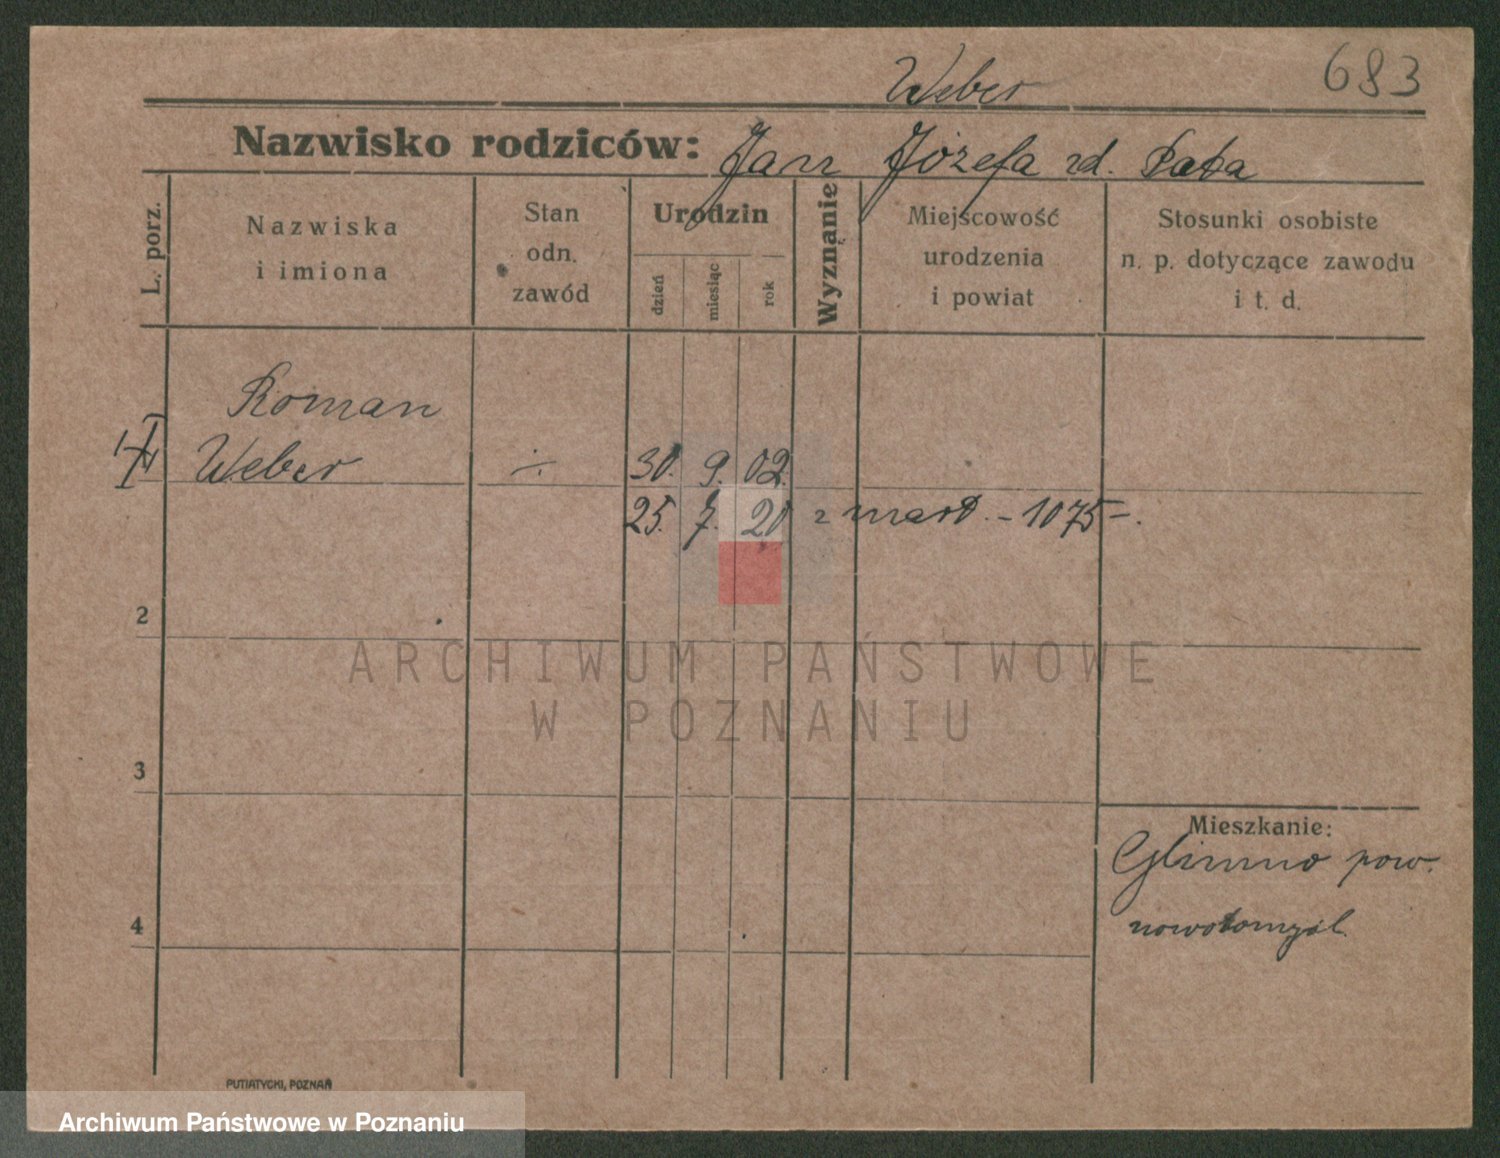 683
Weber
Nazwisko rodziców: Jan Józefa zd.
L. porz.
Nazwiska
i imiona
Stan
odn.
zawód
Urodzin
dzień
miesiąc
rok
Wyznanie
Miejscowość
urodzenia
i powiat
Stosunki osobiste
n. p. dotyczące zawodu
i t. d.
Roman
Weber ÷ 30. 9. 02.
25. 7. 20 - 1075 -.
2
ARCHIWUM PAŃSTWOWE
W POZNANIU
3
Mieszkanie:
Glinno pow.
nowotomysl.
4
PUTIATYCKI, POZNAŃ
Archiwum Państwowe w Poznaniu